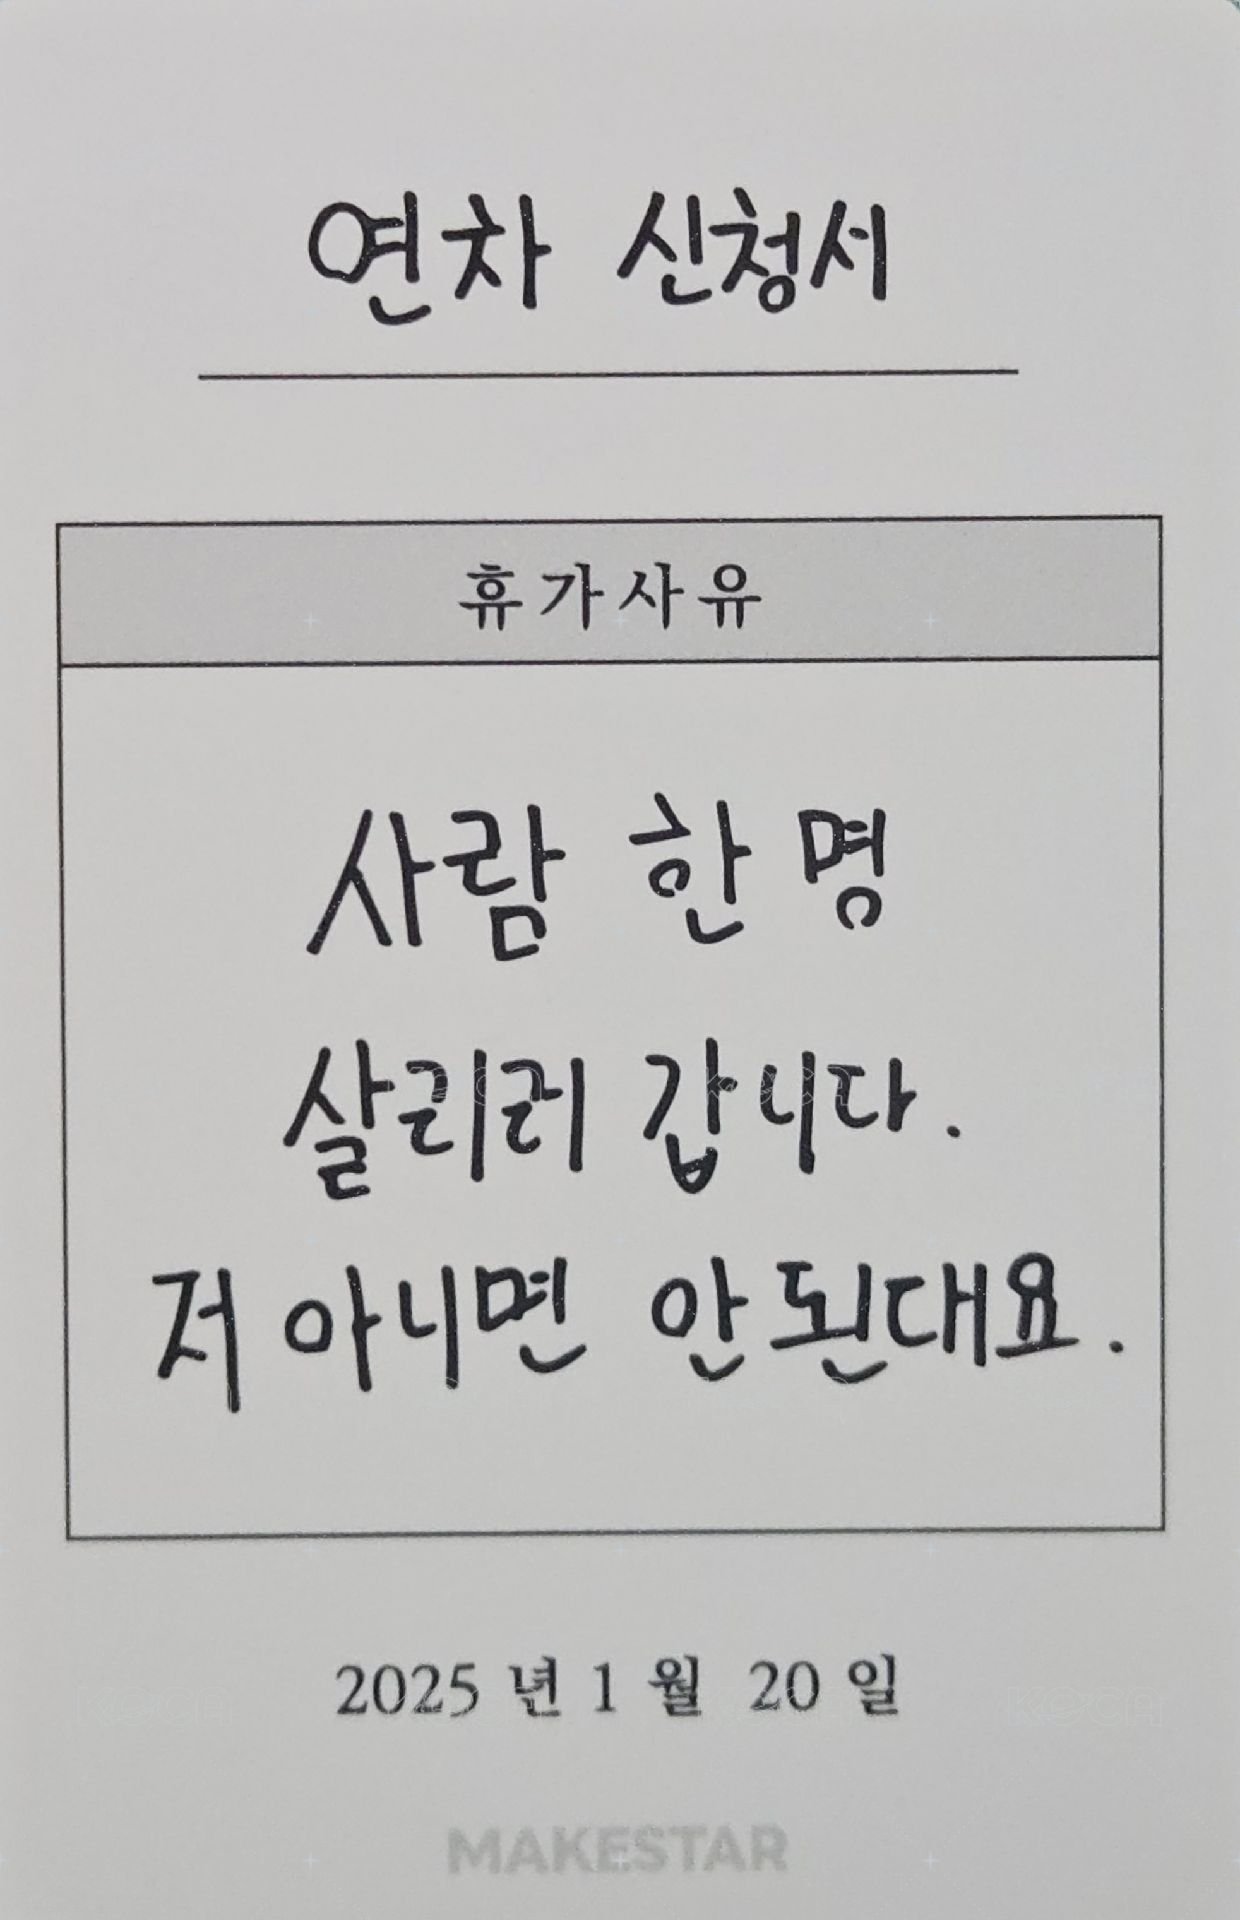 연차 신청서
휴가사유
사람 한 명
살리러 갑니다.
저 아니면 안된대요.
2025 년 1 월 20 일
MAKESTAR